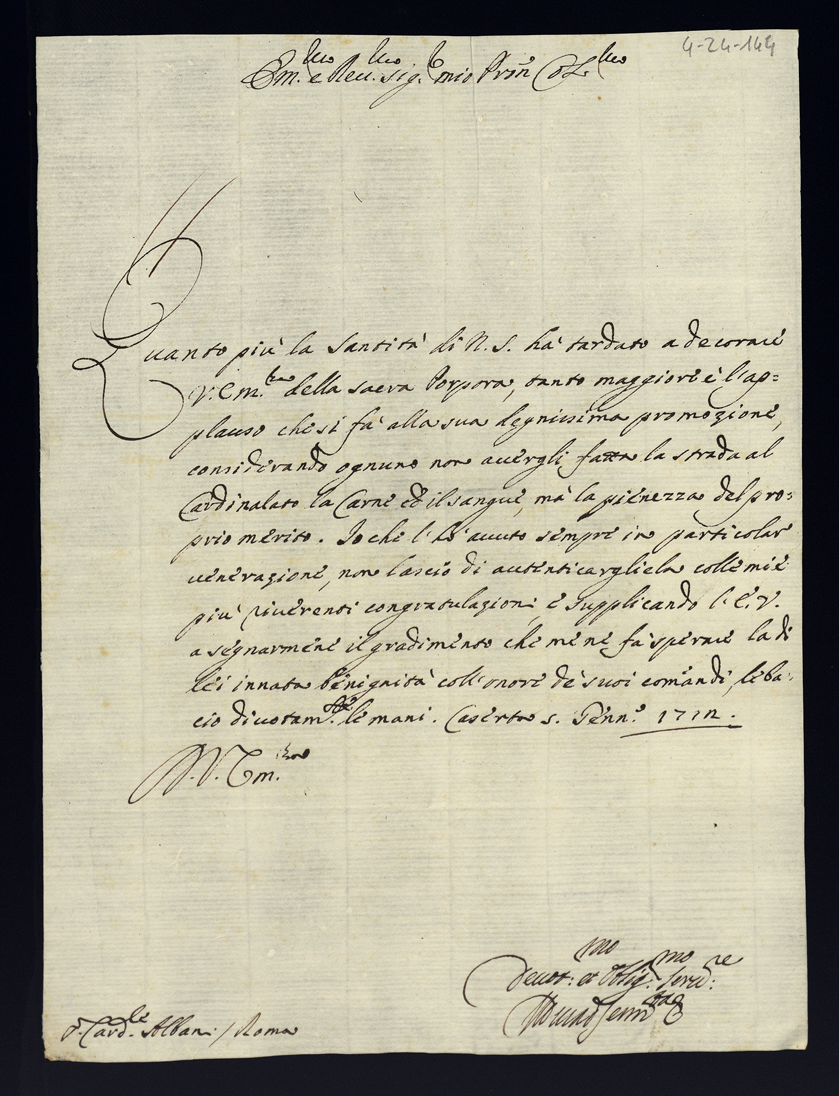 4-24-144
Em.mo e Rev.mo Sig.r mio Pron Col.mo
Quanto più la Santità di N. S. hà tardato a decorare
V. Em.za della sacra Porpora, tanto maggiore è l'ap=
plauso che si fà alla sua degnissima promozione,
considerando ognuno non avergli fatta la strada al
Cardinalato la Carne ed il sangue, mà la pienezza del pro=
prio merito. Io che l'hò avuto sempre in particolar
venerazione, non lascio di autenticargliela colle mie
più riverenti congratulazioni e supplicando l'E. V.
a segnarmene il gradimento che me ne fà sperare la di
lei innata benignità coll'onore de suoi comandi, le ba=
cio divotam.te le mani. Caserta 5. Genn.o 1712.
D. V. Em.za
Devot.mo et Oblig.mo Servid.re
S. Card.le Albani / Roma